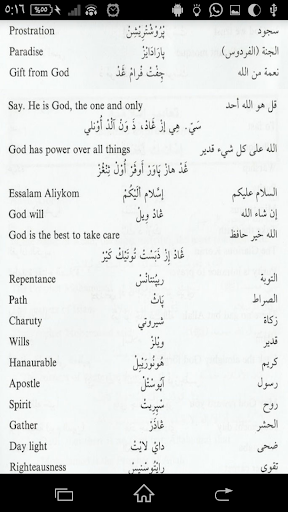 ٥:١٦ ٪٥٥
Prostration بْرُوسْتْرِيْشِنْ سجود
Paradise پَارَادَايْزْ الجنة (الفردوس)
Gift from God جِفْتْ فْرامْ غَدْ نعمة من الله
Say. He is God, the one and only قل هو الله أحد
سَيْ. هِي إزْ غَادْ، ذَ وَنْ آلَدْ أُوْنلي
God has power over all things الله على كل شيء قدير
غَدْ هازْ پَاوَرْ أوفَرْ أُوْلْ ثِنْغْزْ
Essalam Aliykom إسَّلام أَلَيْكُمْ السلام عليكم
God will غَادْ وِيلْ إن شاء الله
God is the best to take care الله خير حافظ
غَادْ إزْ ذَبَسْتْ تُوتَيْكْ كَيْرْ
Repentance ريپُنتانْسْ التوبة
Path پَاثْ الصراط
Charuty شيروتي زكاة
Wills ويلْزْ قدير
Hanaurable هُونُورَيْبِلْ كريم
Apostle آپُوسْتَلْ رسول
Spirit سْپِرِيتْ روح
Gather غَاذَرْ الحشر
Day light دايْ لايْتْ ضحى
Righteausness رايْتُوسْنِيسْ تقوى